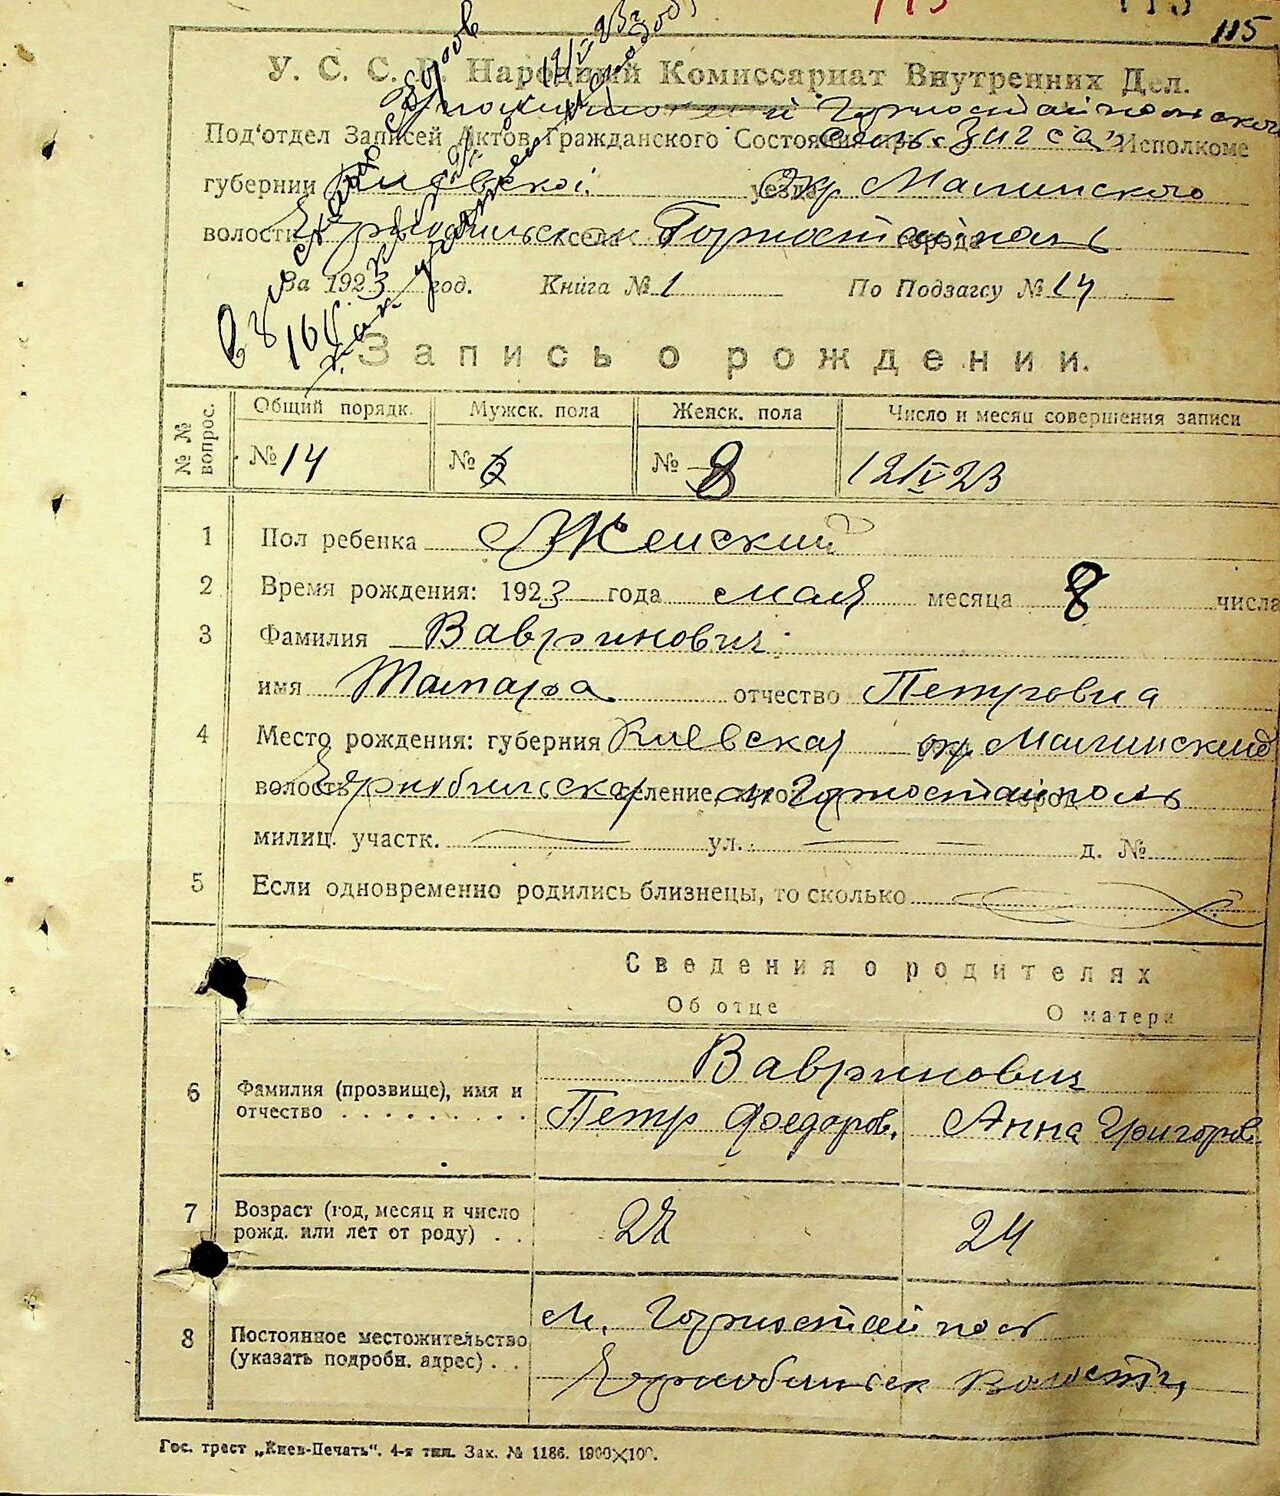 115
У. С. С. Р. Народный Комиссариат Внутренних Дел.
Под'отдел Записей Актов Гражданского Состояния при Исполкоме
губернии Киевской уезда Окр Малинского
волости Чернобильской села м. Горностайполь города
За 1923 год. Книга № 1 По Подзагсу № 14
Запись о рождении.
№№ вопрос. Общий порядк. Мужск. пола Женск. пола Число и месяц совершения записи
№ 14 № 6 № 8 12/V 23
1 Пол ребенка Женский
2 Время рождения: 1923 года мая месяца 8 числа
3 Фамилия Вавринович
имя Тамара отчество Петровна
4 Место рождения: губерния Киевская окр Малинский
волость Чернобильская селение, м Горностайполь город
милиц. участк. — ул. — д. №
5 Если одновременно родились близнецы, то сколько
Сведения о родителях
Об отце О матери
6 Фамилия (прозвище), имя и отчество Вавринович
Петр Федоров. Анна Григоров.
7 Возраст (год, месяц и число рожд. или лет от роду) 24
8 Постоянное местожительство (указать подробн. адрес) м. Горностайпол
Чернобильск волости
Гос. трест „Киев-Печать". 4-я тип. Зак. № 1186. 1900×100.